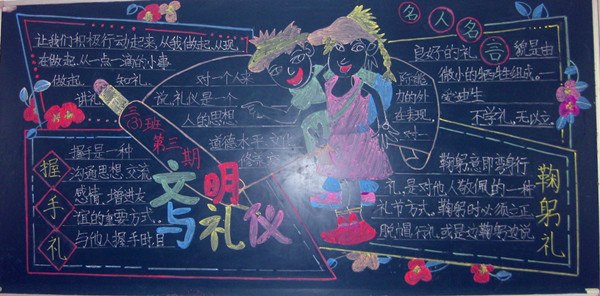 让我们积极行动起来,从我做起,从现
在做起,从一点一滴的小事
做起,知礼,
讲礼
对一个人来
说,礼仪是一个
人的思想
道德水平,文化
修养
际能
力的外
在表现,
对一
名人名言
良好的礼貌是由
微小的牺牲组成。—
爱默生
不学礼,无以立
(3)班
第三期
文明
与礼仪
握手礼
握手是一种
沟通思想,交流
感情,增进友
谊的重要方式。
与他人握手时,目
鞠躬礼
鞠躬,意即弯身行
礼,是对他人敬佩的一种
礼节方式。鞠躬时必须立正,
脱帽